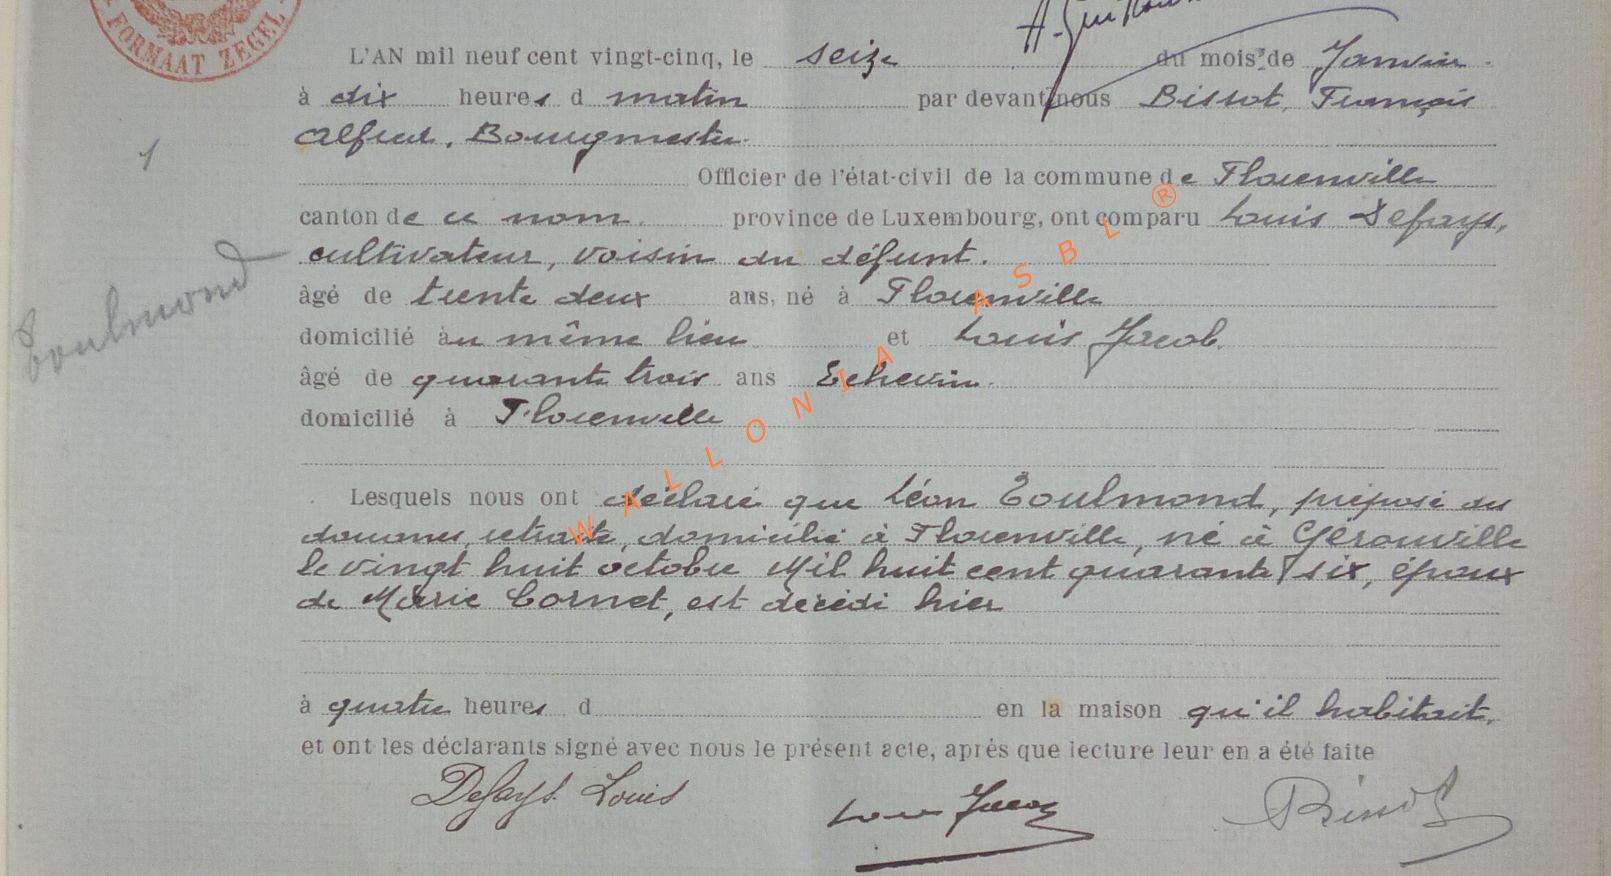 FORMAAT ZEGEL
L'AN mil neuf cent vingt-cinq, le seize du mois de Janvier
à dix heures d matin par devant nous Bissot, François
Alfred, Bourgmestre
1
Officier de l'état-civil de la commune de Florenville
canton de ce nom. province de Luxembourg, ont comparu Louis Defays,
cultivateur, voisin du défunt.
âgé de trente deux ans, né à Florenville
domicilié au même lieu et Louis Jacob.
Toulmond
âgé de quarante trois ans Echevin.
domicilié à Florenville
Lesquels nous ont déclaré que Léon Toulmond, préposé des
douanes, retraité, domicilié à Florenville, né à Gérouville
le vingt huit octobre Mil huit cent quarante six, époux
de Marie Cornet, est décédé hier
à quatre heures d en la maison qu'il habitait.
et ont les déclarants signé avec nous le présent acte, après que lecture leur en a été faite
Defays Louis Louis Jacob Bissot
WALLONIA ASBL ®